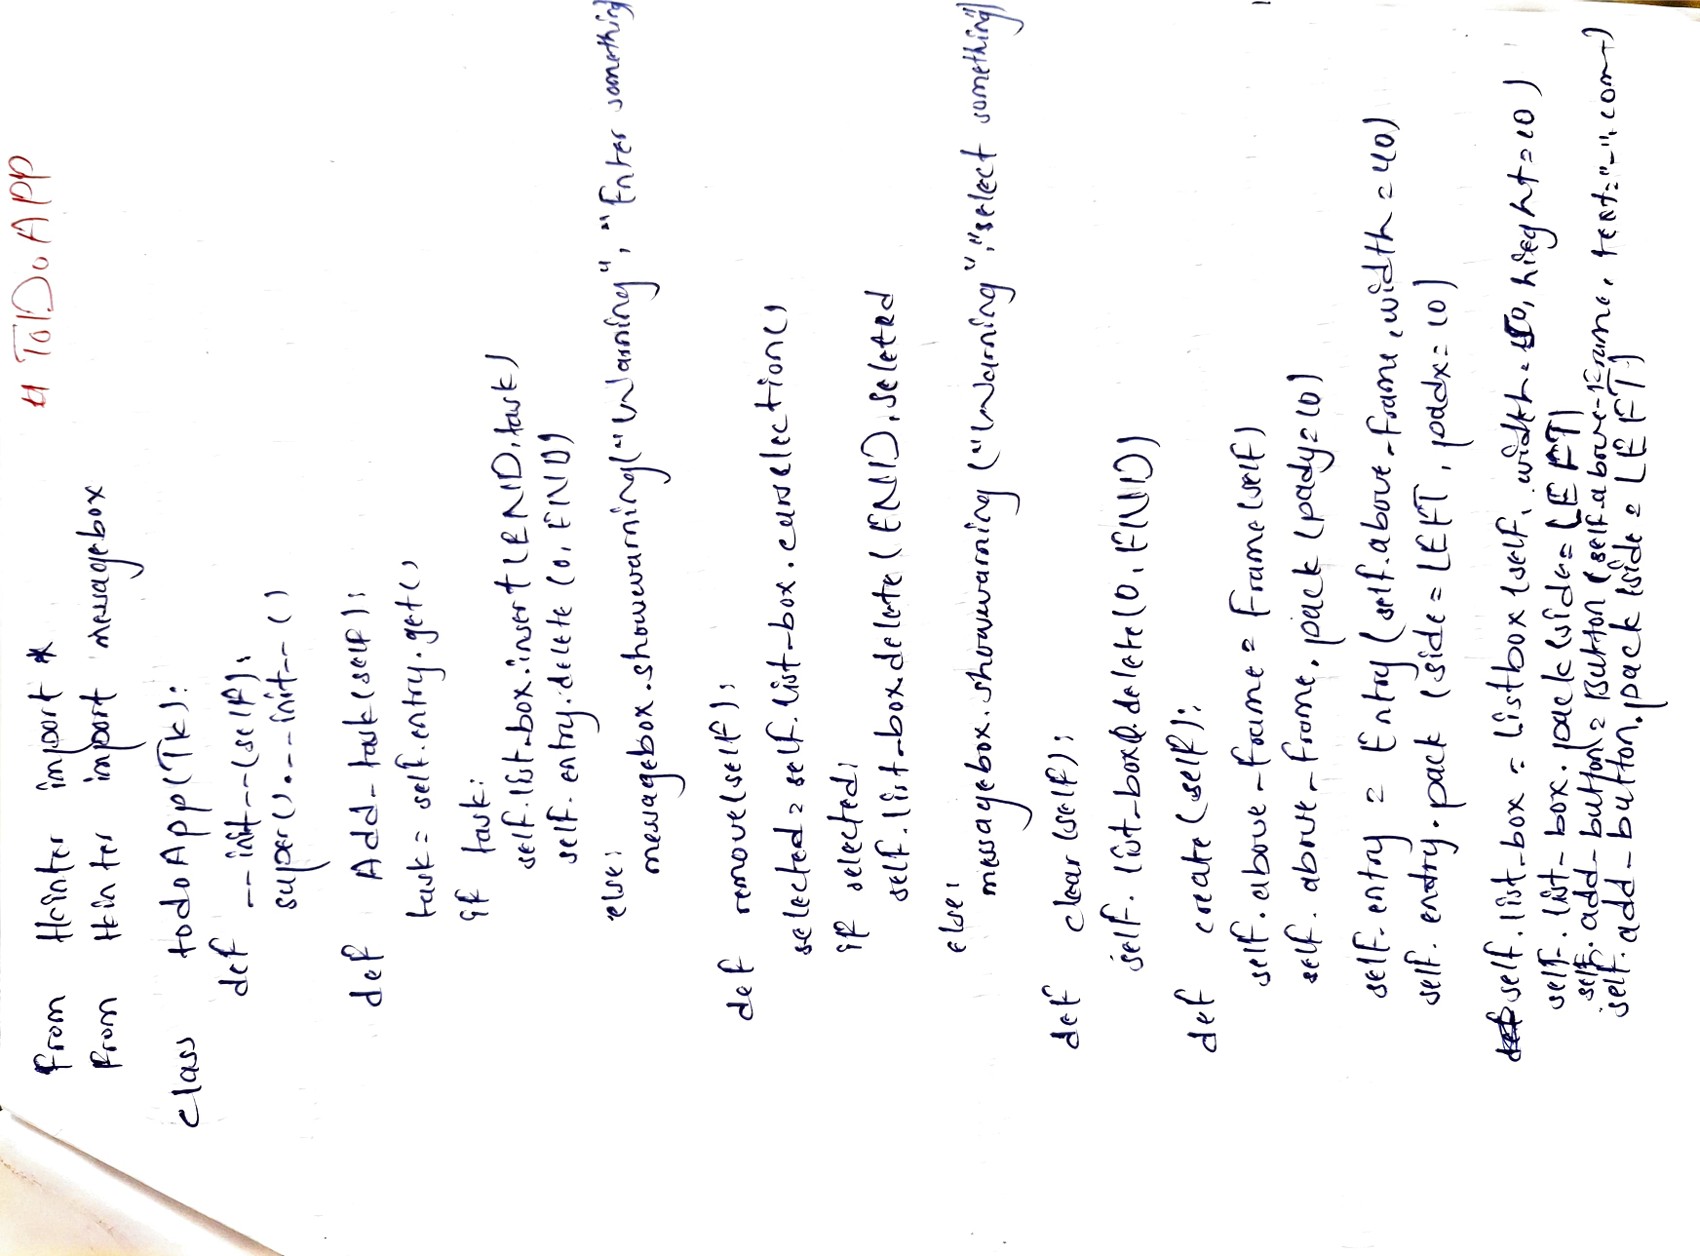 # ToDo APP
from tkinter import *
from tkinter import messagebox
class todoApp(Tk):
def __init__(self):
super().__init__()
def Add_task(self):
task = self.entry.get()
if task:
self.list_box.insert(END, task)
self.entry.delete(0, END)
else:
messagebox.showwarning("Warning", "Enter something
def remove(self):
selected = self.list_box.curselection()
if selected:
self.list_box.delete(END, seleted
else:
messagebox.showwarning("Warning", "select something")
def clear(self):
self.list_box.delete(0, END)
def create(self):
self.above_frame = Frame(self)
self.above_frame.pack(pady=10)
self.entry = Entry(self.above_frame, width=40)
self.entry.pack(side=LEFT, padx=10)
self.list_box = Listbox(self, width= , hieght=10)
self.list_box.pack(side=LEFT)
self.add_button = Button(self.above_frame, text="-", com)
self.add_button.pack(side=LEFT)